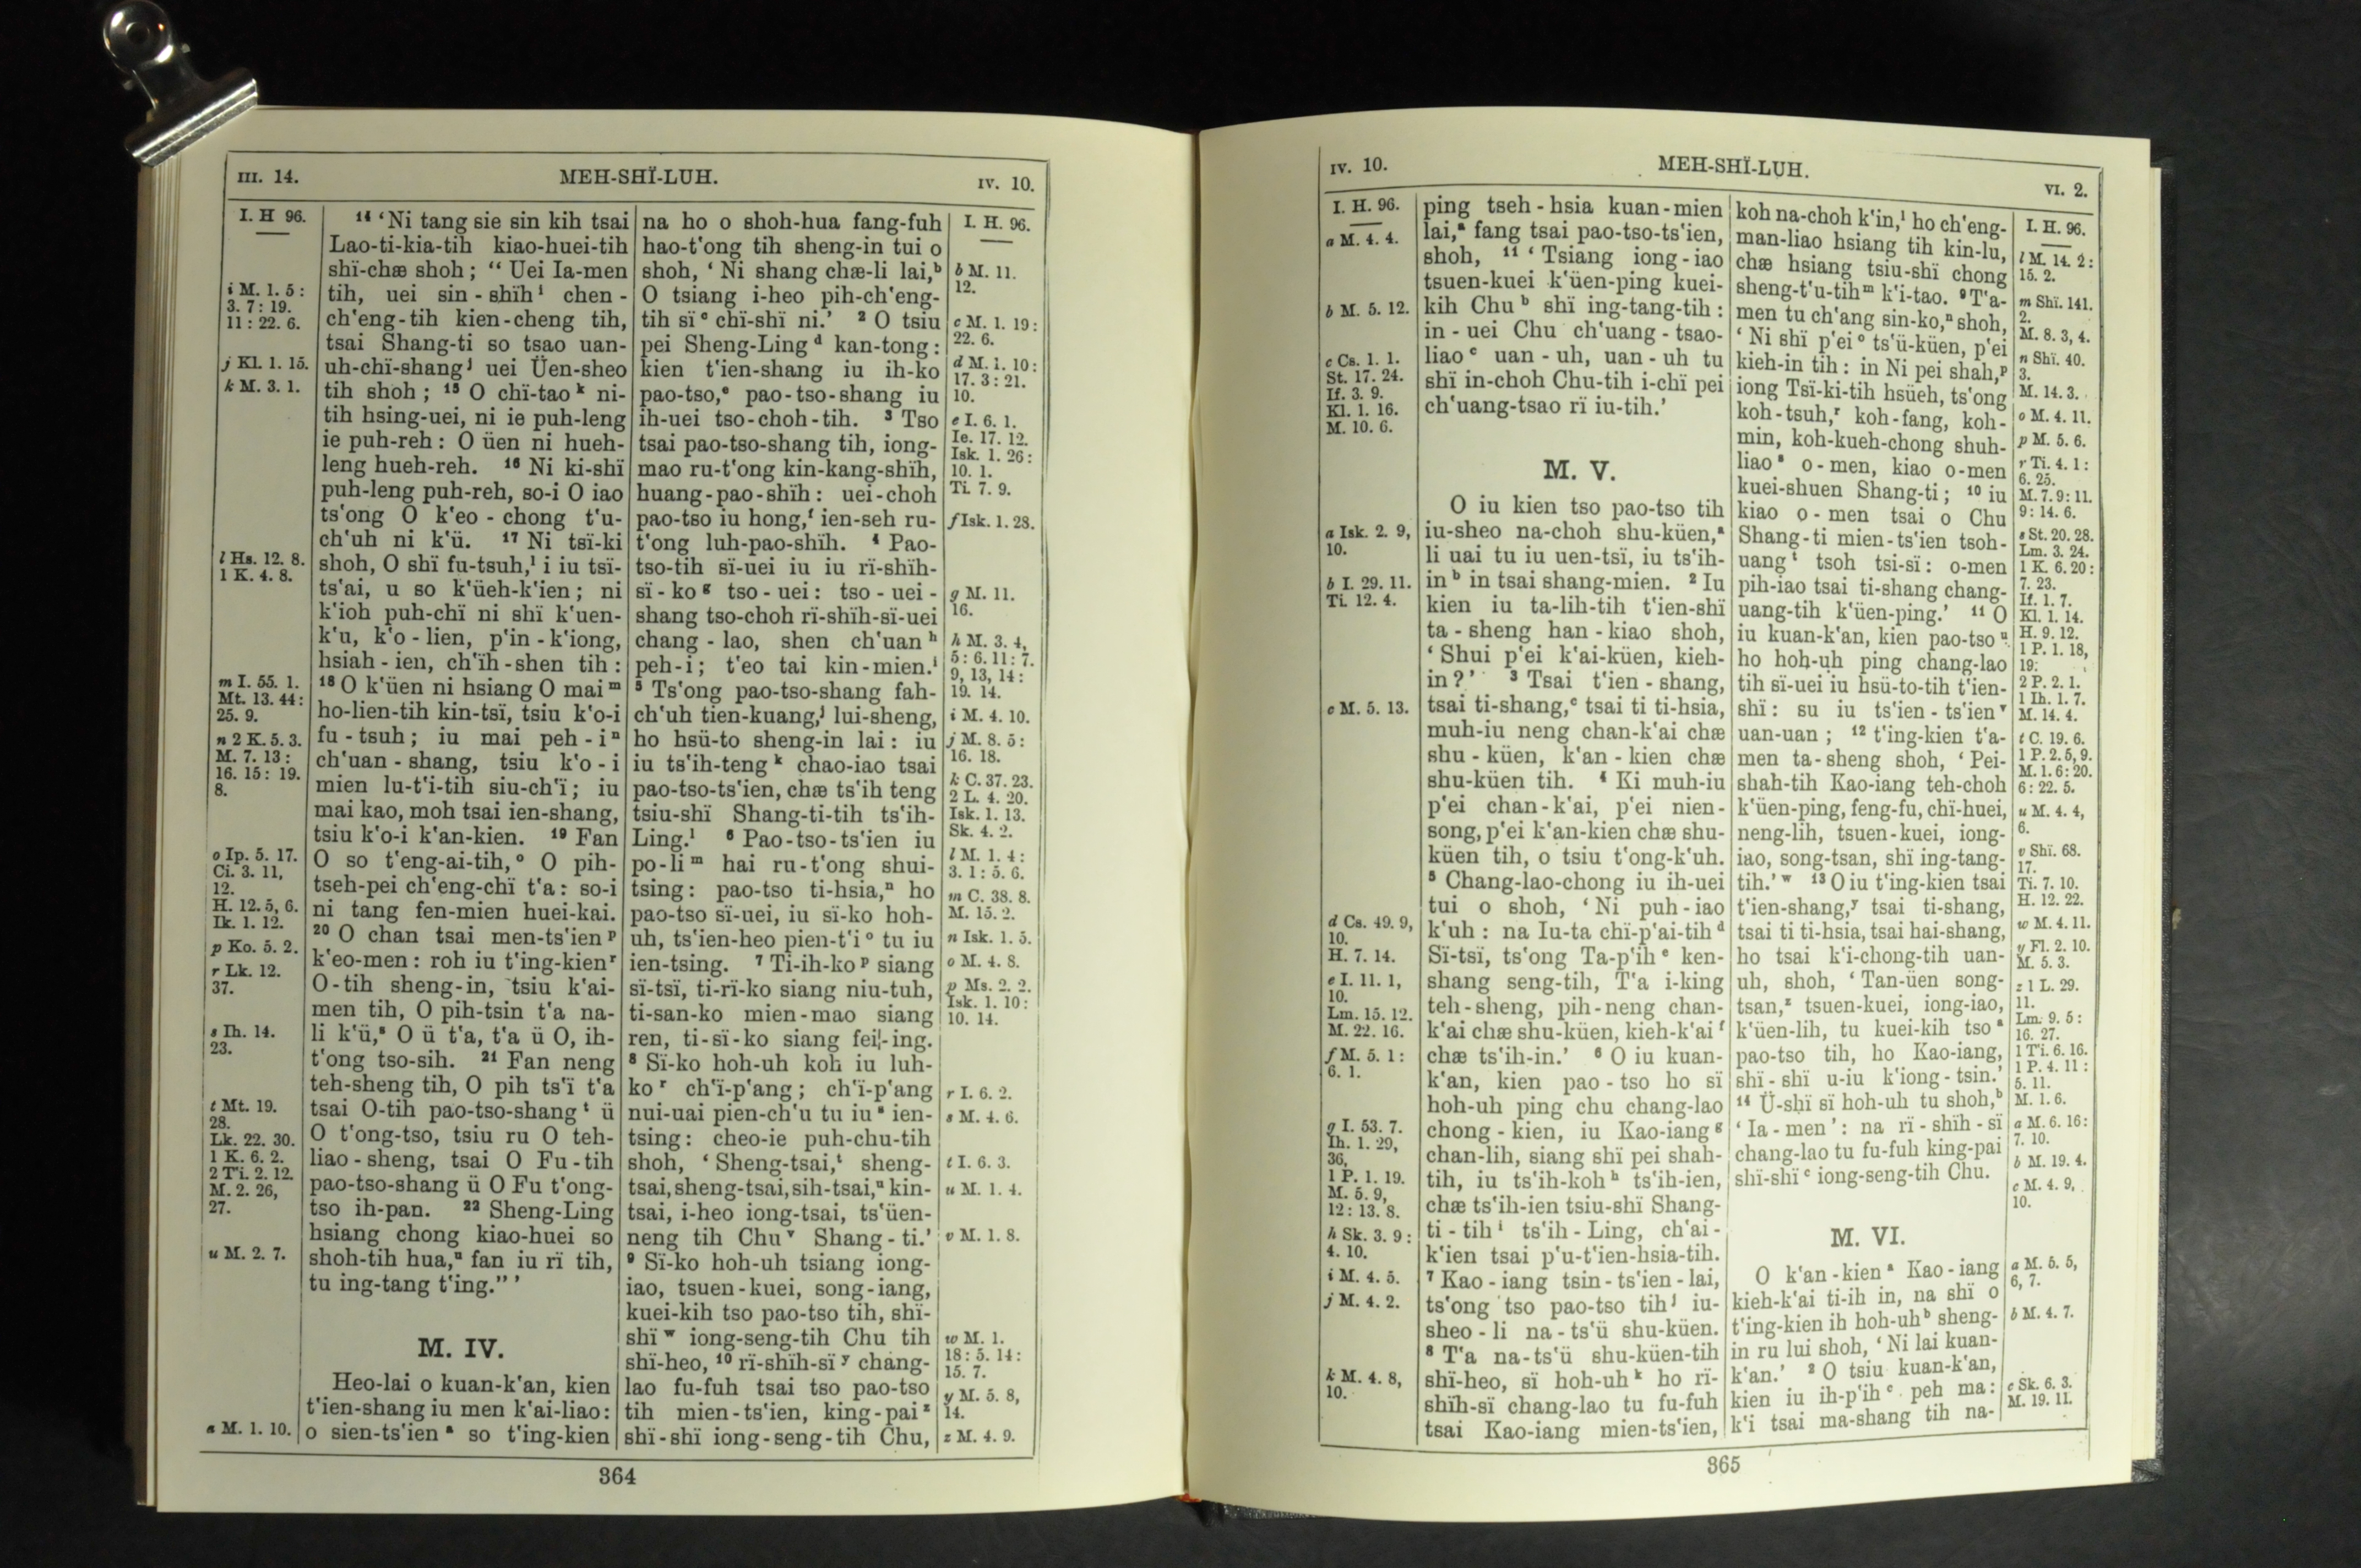 III. 14.
MEH-SHÏ-LUH.
IV. 10.
I. H 96.
i M. 1. 5 :
3. 7 : 19.
11 : 22. 6.
j Kl. 1. 15.
k M. 3. 1.
l Hs. 12. 8.
1 K. 4. 8.
m I. 55. 1.
Mt. 13. 44 :
25. 9.
n 2 K. 5. 3.
M. 7. 13 :
16. 15 : 19.
8.
o Ip. 5. 17.
Ci. 3. 11,
12.
H. 12. 5, 6.
Ik. 1. 12.
p Ko. 5. 2.
r Lk. 12.
37.
s Ih. 14.
23.
t Mt. 19.
28.
Lk. 22. 30.
1 K. 6. 2.
2 Ti. 2. 12.
M. 2. 26,
27.
u M. 2. 7.
a M. 1. 10.
14 ‘Ni tang sie sin kih tsai
Lao-ti-kia-tih kiao-huei-tih
shï-chæ shoh ; “ Uei Ia-men
tih, uei sin - shïh i chen -
ch‘eng-tih kien-cheng tih,
tsai Shang-ti so tsao uan-
uh-chï-shang j uei Üen-sheo
tih shoh ; 15 O chï-tao k ni-
tih hsing-uei, ni ie puh-leng
ie puh-reh : O üen ni hueh-
leng hueh-reh. 16 Ni ki-shï
puh-leng puh-reh, so-i O iao
ts‘ong O k‘eo - chong t‘u-
ch‘uh ni k‘ü. 17 Ni tsï-ki
shoh, O shï fu-tsuh, l i iu tsï-
ts‘ai, u so k‘üeh-k‘ien ; ni
k‘ioh puh-chï ni shï k‘uen-
k‘u, k‘o - lien, p‘in - k‘iong,
hsiah - ien, ch‘ïh - shen tih :
18 O k‘üen ni hsiang O mai m
ho-lien-tih kin-tsï, tsiu k‘o-i
fu - tsuh ; iu mai peh - i n
ch‘uan - shang, tsiu k‘o - i
mien lu-t‘i-tih siu-ch‘ï ; iu
mai kao, moh tsai ien-shang,
tsiu k‘o-i k‘an-kien. 19 Fan
O so t‘eng-ai-tih, o O pih-
tseh-pei ch‘eng-chï t‘a : so-i
ni tang fen-mien huei-kai.
20 O chan tsai men-ts‘ien p
k‘eo-men : roh iu t‘ing-kien r
O-tih sheng-in, tsiu k‘ai-
men tih, O pih-tsin t‘a na-
li k‘ü, s O ü t‘a, t‘a ü O, ih-
t‘ong tso-sih. 21 Fan neng
teh-sheng tih, O pih ts‘ï t‘a
tsai O-tih pao-tso-shang t ü
O t‘ong-tso, tsiu ru O teh-
liao - sheng, tsai O Fu - tih
pao-tso-shang ü O Fu t‘ong-
tso ih-pan. 22 Sheng-Ling
hsiang chong kiao-huei so
shoh-tih hua, u fan iu rï tih,
tu ing-tang t‘ing.” ’
M. IV.
Heo-lai o kuan-k‘an, kien
t‘ien-shang iu men k‘ai-liao :
o sien-ts‘ien a so t‘ing-kien
na ho o shoh-hua fang-fuh
hao-t‘ong tih sheng-in tui o
shoh, ‘ Ni shang chæ-li lai, b
O tsiang i-heo pih-ch‘eng-
tih sï c chï-shï ni.’ 2 O tsiu
pei Sheng-Ling d kan-tong :
kien t‘ien-shang iu ih-ko
pao-tso, e pao-tso-shang iu
ih-uei tso-choh-tih. 3 Tso
tsai pao-tso-shang tih, iong-
mao ru-t‘ong kin-kang-shïh,
huang-pao-shïh : uei-choh
pao-tso iu hong, f ien-seh ru-
t‘ong luh-pao-shïh. 4 Pao-
tso-tih sï-uei iu iu rï-shïh-
sï - ko g tso - uei : tso - uei -
shang tso-choh rï-shïh-sï-uei
chang - lao, shen ch‘uan h
peh-i ; t‘eo tai kin-mien. i
5 Ts‘ong pao-tso-shang fah-
ch‘uh tien-kuang, j lui-sheng,
ho hsü-to sheng-in lai : iu
iu ts‘ih-teng k chao-iao tsai
pao-tso-ts‘ien, chæ ts‘ih teng
tsiu-shï Shang-ti-tih ts‘ih-
Ling. l 6 Pao-tso-ts‘ien iu
po-li m hai ru-t‘ong shui-
tsing : pao-tso ti-hsia, n ho
pao-tso sï-uei, iu sï-ko hoh-
uh, ts‘ien-heo pien-t‘i o tu iu
ien-tsing. 7 Ti-ih-ko p siang
sï-tsï, ti-rï-ko siang niu-tuh,
ti-san-ko mien-mao siang
ren, ti-sï-ko siang fei-ing.
8 Sï-ko hoh-uh koh iu luh-
ko r ch‘ï-p‘ang ; ch‘ï-p‘ang
nui-uai pien-ch‘u tu iu s ien-
tsing : cheo-ie puh-chu-tih
shoh, ‘ Sheng-tsai, t sheng-
tsai, sheng-tsai, sih-tsai, u kin-
tsai, i-heo iong-tsai, ts‘üen-
neng tih Chu v Shang - ti.’
9 Sï-ko hoh-uh tsiang iong-
iao, tsuen-kuei, song-iang,
kuei-kih tso pao-tso tih, shï-
shï w iong-seng-tih Chu tih
shï-heo, 10 rï-shïh-sï y chang-
lao fu-fuh tsai tso pao-tso
tih mien-ts‘ien, king-pai z
shï-shï iong-seng-tih Chu,
I. H. 96.
b M. 11.
12.
c M. 1. 19 :
22. 6.
d M. 1. 10 :
17. 3 : 21.
10.
e I. 6. 1.
Ie. 17. 12.
Isk. 1. 26 :
10. 1.
Ti. 7. 9.
f Isk. 1. 28.
g M. 11.
16.
h M. 3. 4,
5 : 6. 11 : 7.
9, 13, 14 :
19. 14.
i M. 4. 10.
j M. 8. 5 :
16. 18.
k C. 37. 23.
2 L. 4. 20.
Isk. 1. 13.
Sk. 4. 2.
l M. 1. 4 :
3. 1 : 5. 6.
m C. 38. 8.
M. 15. 2.
n Isk. 1. 5.
o M. 4. 8.
p Ms. 2. 2.
Isk. 1. 10 :
10. 14.
r I. 6. 2.
s M. 4. 6.
t I. 6. 3.
u M. 1. 4.
v M. 1. 8.
w M. 1.
18 : 5. 14 :
15. 7.
y M. 5. 8,
14.
z M. 4. 9.
364
IV. 10.
MEH-SHÏ-LUH.
VI. 2.
I. H. 96.
a M. 4. 4.
b M. 5. 12.
c Cs. 1. 1.
St. 17. 24.
If. 3. 9.
Kl. 1. 16.
M. 10. 6.
a Isk. 2. 9,
10.
b I. 29. 11.
Ti. 12. 4.
c M. 5. 13.
d Cs. 49. 9,
10.
H. 7. 14.
e I. 11. 1,
10.
Lm. 15. 12.
M. 22. 16.
f M. 5. 1 :
6. 1.
g I. 53. 7.
Ih. 1. 29,
36,
1 P. 1. 19.
M. 5. 9,
12 : 13. 8.
h Sk. 3. 9 :
4. 10.
i M. 4. 5.
j M. 4. 2.
k M. 4. 8,
10.
ping tseh - hsia kuan - mien
lai, a fang tsai pao-tso-ts‘ien,
shoh, 11 ‘ Tsiang iong - iao
tsuen-kuei k‘üen-ping kuei-
kih Chu b shï ing-tang-tih :
in - uei Chu ch‘uang - tsao-
liao c uan - uh, uan - uh tu
shï in-choh Chu-tih i-chï pei
ch‘uang-tsao rï iu-tih.’
M. V.
O iu kien tso pao-tso tih
iu-sheo na-choh shu-küen, a
li uai tu iu uen-tsï, iu ts‘ih-
in b in tsai shang-mien. 2 Iu
kien iu ta-lih-tih t‘ien-shï
ta - sheng han - kiao shoh,
‘ Shui p‘ei k‘ai-küen, kieh-
in ?’ 3 Tsai t‘ien - shang,
tsai ti-shang, c tsai ti ti-hsia,
muh-iu neng chan-k‘ai chæ
shu - küen, k‘an - kien chæ
shu-küen tih. 4 Ki muh-iu
p‘ei chan-k‘ai, p‘ei nien-
song, p‘ei k‘an-kien chæ shu-
küen tih, o tsiu t‘ong-k‘uh.
5 Chang-lao-chong iu ih-uei
tui o shoh, ‘ Ni puh - iao
k‘uh : na Iu-ta chï-p‘ai-tih d
Sï-tsï, ts‘ong Ta-p‘ih e ken-
shang seng-tih, T‘a i-king
teh-sheng, pih-neng chan-
k‘ai chæ shu-küen, kieh-k‘ai f
chæ ts‘ih-in.’ 6 O iu kuan-
k‘an, kien pao - tso ho sï
hoh-uh ping chu chang-lao
chong - kien, iu Kao-iang g
chan-lih, siang shï pei shah-
tih, iu ts‘ih-koh h ts‘ih-ien,
chæ ts‘ih-ien tsiu-shï Shang-
ti - tih i ts‘ih - Ling, ch‘ai -
k‘ien tsai p‘u-t‘ien-hsia-tih.
7 Kao - iang tsin - ts‘ien - lai,
ts‘ong tso pao-tso tih j iu-
sheo - li na - ts‘ü shu-küen.
8 T‘a na-ts‘ü shu-küen-tih
shï-heo, sï hoh-uh k ho rï-
shïh-sï chang-lao tu fu-fuh
tsai Kao-iang mien-ts‘ien,
koh na-choh k‘in, l ho ch‘eng-
man-liao hsiang tih kin-lu,
chæ hsiang tsiu-shï chong
sheng-t‘u-tih m k‘i-tao. 9 T‘a-
men tu ch‘ang sin-ko, n shoh,
‘ Ni shï p‘ei o ts‘ü-küen, p‘ei
kieh-in tih : in Ni pei shah, p
iong Tsï-ki-tih hsüeh, ts‘ong
koh-tsuh, r koh-fang, koh-
min, koh-kueh-chong shuh-
liao s o - men, kiao o-men
kuei-shuen Shang-ti ; 10 iu
kiao o - men tsai o Chu
Shang-ti mien-ts‘ien tsoh-
uang t tsoh tsi-sï : o-men
pih-iao tsai ti-shang chang-
uang-tih k‘üen-ping.’ 11 O
iu kuan-k‘an, kien pao-tso u
ho hoh-uh ping chang-lao
tih sï-uei iu hsü-to-tih t‘ien-
shï : su iu ts‘ien - ts‘ien v
uan-uan ; 12 t‘ing-kien t‘a-
men ta-sheng shoh, ‘ Pei-
shah-tih Kao-iang teh-choh
k‘üen-ping, feng-fu, chï-huei,
neng-lih, tsuen-kuei, iong-
iao, song-tsan, shï ing-tang-
tih.’ w 13 O iu t‘ing-kien tsai
t‘ien-shang, y tsai ti-shang,
tsai ti ti-hsia, tsai hai-shang,
ho tsai k‘i-chong-tih uan-
uh, shoh, ‘ Tan-üen song-
tsan, z tsuen-kuei, iong-iao,
k‘üen-lih, tu kuei-kih tso a
pao-tso tih, ho Kao-iang,
shï - shï u-iu k‘iong - tsin.’
14 Ü-shï sï hoh-uh tu shoh, b
‘ Ia - men ’ : na rï - shïh - sï
chang-lao tu fu-fuh king-pai
shï-shï c iong-seng-tih Chu.
M. VI.
O k‘an - kien a Kao - iang
kieh-k‘ai ti-ih in, na shï o
t‘ing-kien ih hoh-uh b sheng-
in ru lui shoh, ‘ Ni lai kuan-
k‘an.’ 2 O tsiu kuan-k‘an,
kien iu ih-p‘ih c peh ma :
k‘i tsai ma-shang tih na-
I. H. 96.
l M. 14. 2 :
15. 2.
m Shï. 141.
2.
M. 8. 3, 4.
n Shï. 40.
3.
M. 14. 3.
o M. 4. 11.
p M. 5. 6.
r Ti. 4. 1 :
6. 25.
M. 7. 9 : 11.
9 : 14. 6.
s St. 20. 28.
Lm. 3. 24.
1 K. 6. 20 :
7. 23.
If. 1. 7.
Kl. 1. 14.
H. 9. 12.
1 P. 1. 18,
19.
2 P. 2. 1.
1 Ih. 1. 7.
M. 14. 4.
t C. 19. 6.
1 P. 2. 5, 9.
M. 1. 6 : 20.
6 : 22. 5.
u M. 4. 4,
6.
v Shï. 68.
17.
Ti. 7. 10.
H. 12. 22.
w M. 4. 11.
y Fl. 2. 10.
M. 5. 3.
z 1 L. 29.
11.
Lm. 9. 5 :
16. 27.
1 Ti. 6. 16.
1 P. 4. 11 :
5. 11.
M. 1. 6.
a M. 6. 16 :
7. 10.
b M. 19. 4.
c M. 4. 9,
10.
a M. 5. 5,
6, 7.
b M. 4. 7.
c Sk. 6. 3.
M. 19. 11.
365